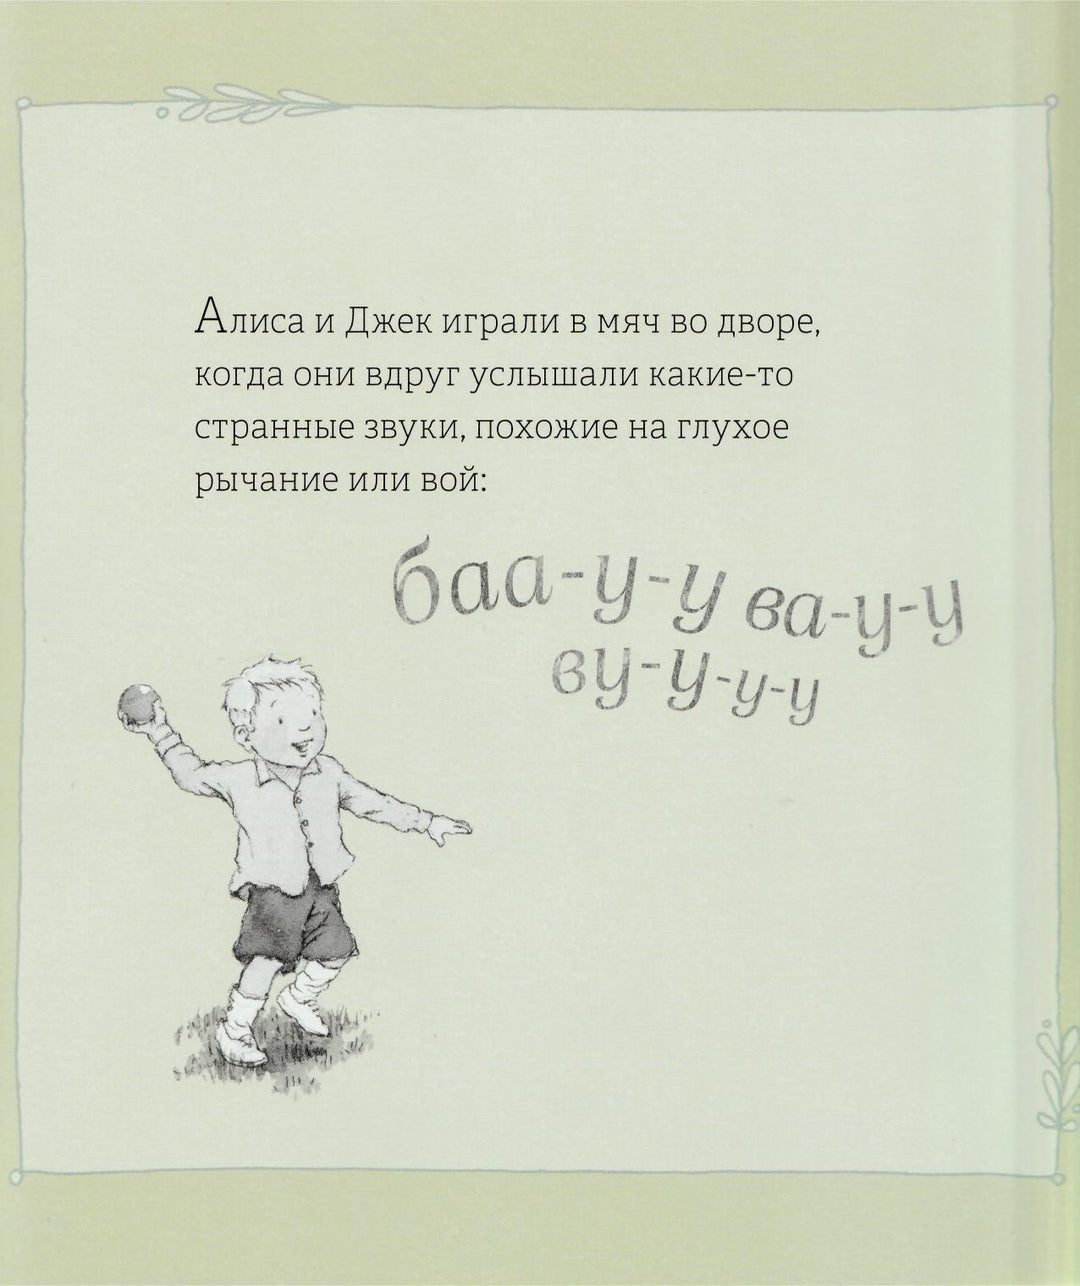 Алиса и Джек играли в мяч во дворе,
когда они вдруг услышали какие-то
странные звуки, похожие на глухое
рычание или вой:
баа-у-у ва-у-у
ву-у-у-у